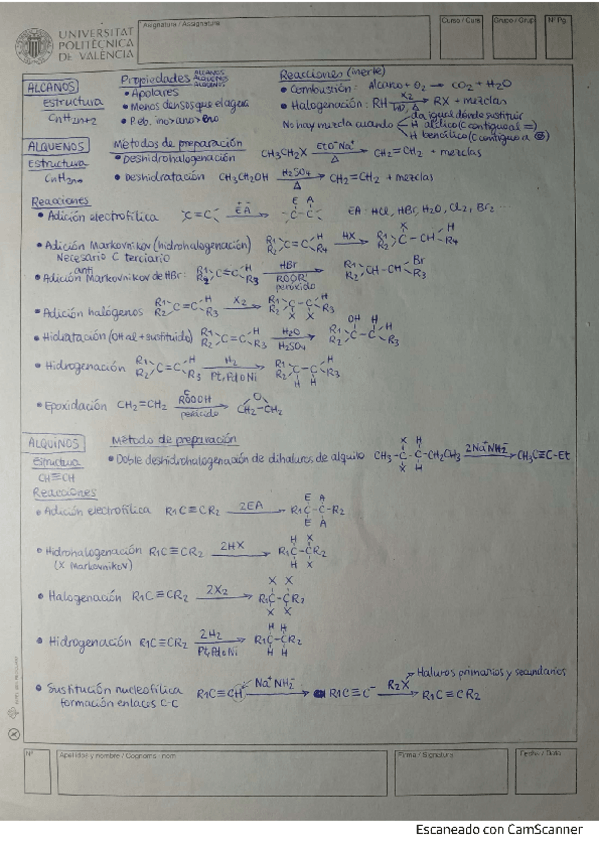 UNIVERSITAT
POLITÈCNICA
DE VALÈNCIA
Asignatura / Assignatura
Curso / Curs
Grupo / Grup
Nº Pg.
ALCANOS
Estructura
CnH2n+2
Propiedades ALCANOS ALQUENOS ALQUINOS
• Apolares
• Menos densos que el agua
Reacciones (inerte)
• Combustión: Alcano + O2 → CO2 + H2O
• Halogenación: RH X2 → RX + mezclas
da igual dónde sustituir
No hay mezcla cuando H alílico (C contiguo a =)
H bencílico (C contiguo a
ALQUENOS
Estructura
CnH2n
Métodos de preparación
• Deshidrohalogenación CH3CH2X EtO-Na+ Δ → CH2=CH2 + mezclas
• Deshidratación CH3CH2OH H2SO4 Δ → CH2=CH2 + mezclas
Reacciones
• Adición electrofílica C=C EA → E A -C-C- EA: HCl, HBr, H2O, Cl2, Br2 ...
• Adición Markovnikov (hidrohalogenación) R1 R2 C=C H R4 HX → R1 R2 X C-CH H R4
Necesario C terciario
• Adición anti Markovnikov de HBr: R1 R2 C=C H R3 HBr ROOR peróxido → R1 R2 CH-CH Br R3
• Adición halógenos R1 R2 C=C H R3 X2 → R1 R2 C-C H R3 X X
• Hidratación (OH al + sustituido) R1 R2 C=C H R3 H2O H2SO4 → R1 R2 OH H C-C H R3
• Hidrogenación R1 R2 C=C H R3 H2 Pt, Pd o Ni → R1 R2 C-C H R3 H H
• Epoxidación CH2=CH2 perácido → O CH2-CH2
ALQUINOS
Estructura
CH≡CH
Método de preparación
• Doble deshidrohalogenación de dihaluros de alquilo CH3-C-C-CH2CH3 X H X H 2Na+NH2- → CH3C≡C-Et
Reacciones
• Adición electrofílica R1C≡CR2 2EA → E A R1C-C-R2 E A
• Hidrohalogenación R1C≡CR2 2HX → H X R1C-CR2 H X
(X Markovnikov)
• Halogenación R1C≡CR2 2X2 → X X R1C-CR2 X X
• Hidrogenación R1C≡CR2 2H2 Pt, Pd o Ni → H H R1C-CR2 H H
• Sustitución nucleofílica R1C≡CH Na+NH2- → R1C≡C- R2X → R1C≡CR2
formación enlaces C-C
Haluros primarios y secundarios
Nº
Apellidos y nombre / Cognoms i nom
Firma / Signatura
Fecha / Data
Escaneado con CamScanner